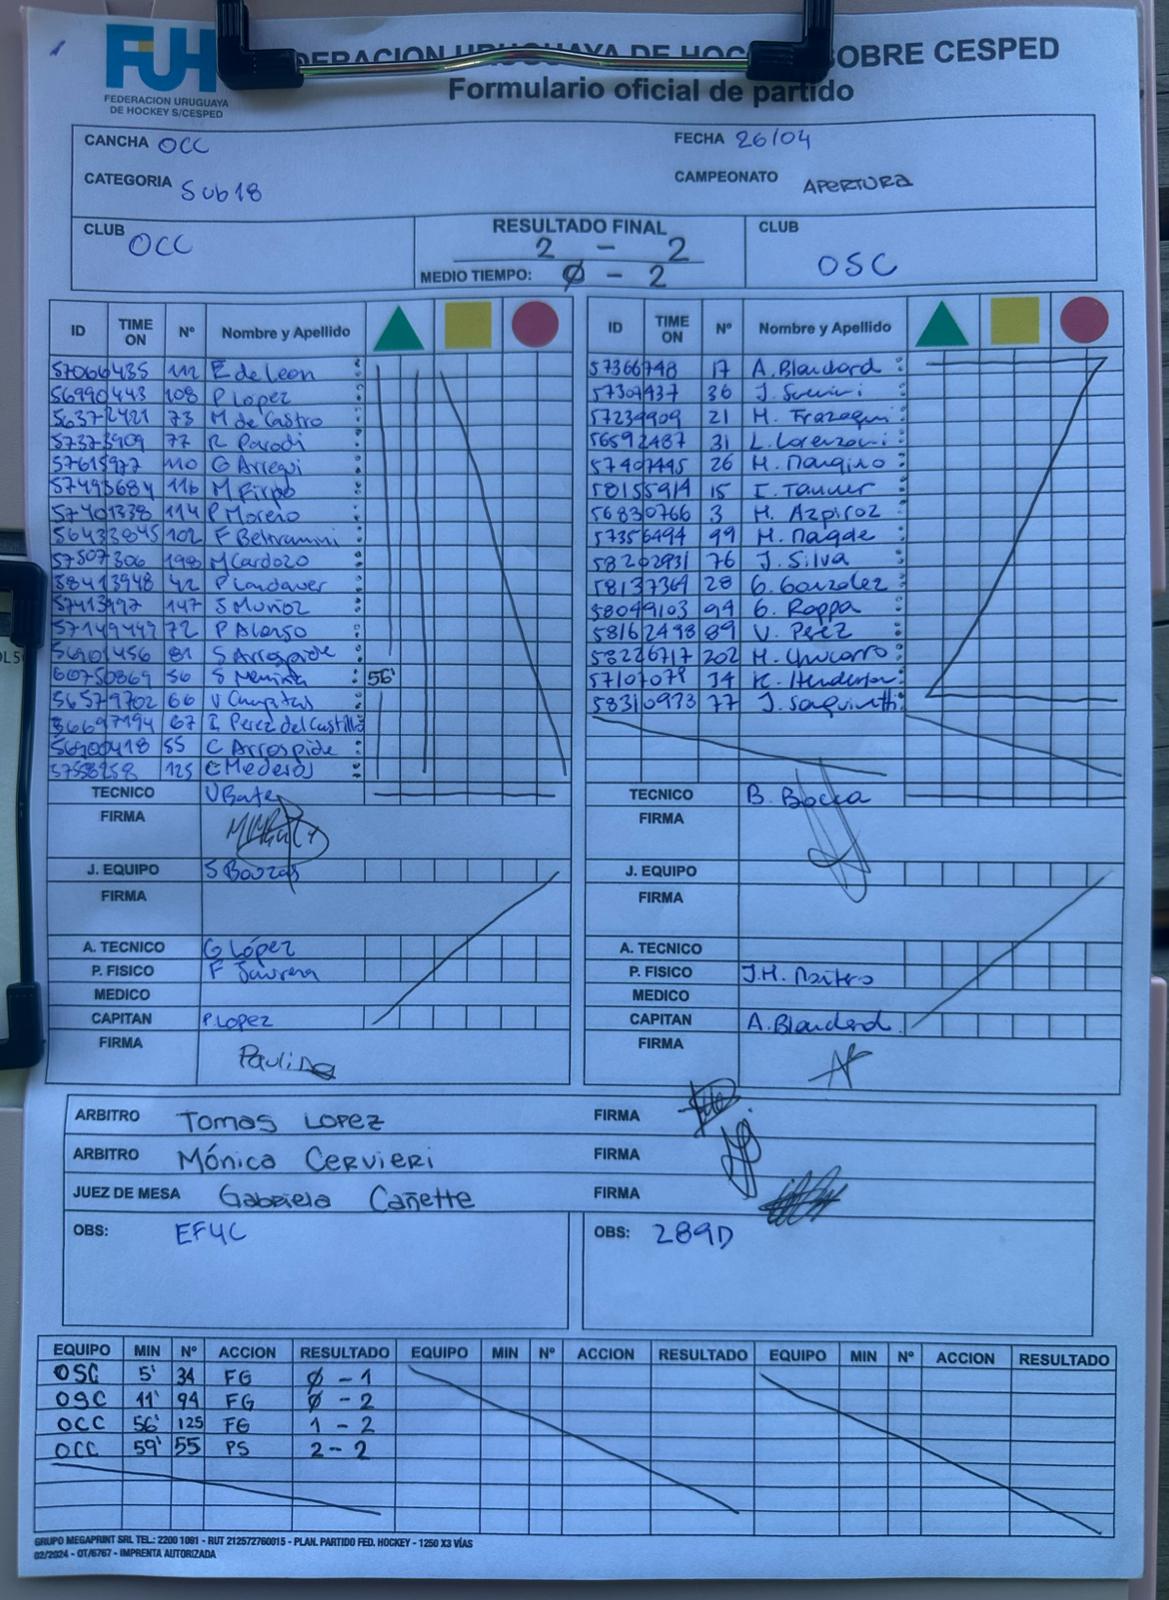 FUH
FEDERACION URUGUAYA
DE HOCKEY S/CESPED
FEDERACION URUGUAYA DE HOC SOBRE CESPED
Formulario oficial de partido
CANCHA OCC
FECHA 26/04
CATEGORIA Sub18
CAMPEONATO APERTURA
CLUB OCC
RESULTADO FINAL
2 - 2
MEDIO TIEMPO: 0 - 2
CLUB
OSC
ID TIME ON Nº Nombre y Apellido
57066435 112 E de Leon
56990443 108 P Lopez
56372421 73 M de Castro
57373909 77 R Parodi
57615977 110 G Arregui
57493684 116 M Firpo
57401338 114 P Moreno
56433845 102 F Beltramini
57507306 198 M Cardozo
58413948 42 P Landauer
57413997 147 S Muñoz
57149449 72 P Alonso
56901456 81 S Arrospide
60750869 56 S 56'
56579702 66 V
56697194 67 I Perez del Castillo
56900418 55 C Arrospide
5758258 125 C Mederos
TECNICO V Bate
FIRMA
J. EQUIPO S Bouzas
FIRMA
A. TECNICO G López
P. FISICO F
MEDICO
CAPITAN P. LOPEZ
FIRMA Paulina
ID TIME ON Nº Nombre y Apellido
57366748 17 A. Blanchard
57307437 36 J.
57239909 21 M.
56592487 31 L. Lorenzoni
57407445 26 M. Mangino
58155914 15 I. Tanner
56830766 3 M. Azpiroz
57356494 99 M. Magde
58202931 76 J. Silva
58137364 28 G. Gonzalez
58049103 94 G. Rappa
58162498 89 V. Perez
58226717 202 M. Chucarro
57107079 34 K. Henderson
58310973 77 J.
TECNICO B. Bocca
FIRMA
J. EQUIPO
FIRMA
A. TECNICO
P. FISICO J.M.
MEDICO
CAPITAN A. Blanchard
FIRMA
ARBITRO Tomas Lopez FIRMA
ARBITRO Mónica Cervieri FIRMA
JUEZ DE MESA Gabriela Cañette FIRMA
OBS: EF4C
OBS: 289D
EQUIPO MIN Nº ACCION RESULTADO EQUIPO MIN Nº ACCION RESULTADO EQUIPO MIN Nº ACCION RESULTADO
OSC 5' 34 FG 0 - 1
OSC 11' 94 FG 0 - 2
OCC 56' 125 FG 1 - 2
OCC 59' 55 PS 2 - 2
GRUPO MEGAPRINT SRL TEL.: 2200 1091 - RUT 212572760015 - PLAN. PARTIDO FED. HOCKEY - 1250 X3 VÍAS
02/2024 - OT/6767 - IMPRENTA AUTORIZADA